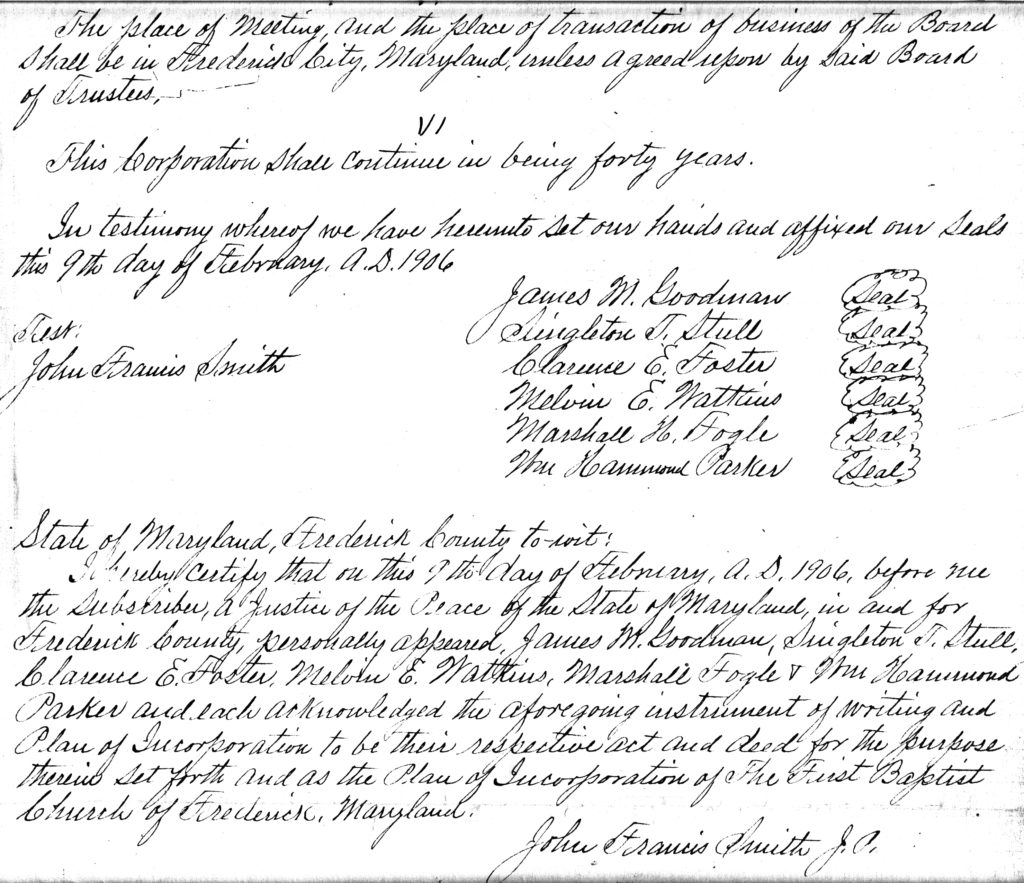 The place of Meeting, and the place of transaction of business of the Board
shall be in Frederick City, Maryland, unless agreed upon by said Board
of Trustees.
VI
This Corporation shall continue in being forty years.
In testimony whereof we have hereunto set our hands and affixed our seals
this 9th day of February, A.D. 1906
James M. Goodman (Seal)
Singleton T. Stull (Seal)
Clarence E. Foster (Seal)
Melvin E. Watkins (Seal)
Marshall H. Fogle (Seal)
Wm Hammond Parker (Seal)
Test:
John Francis Smith
State of Maryland, Frederick County to-wit:
I hereby certify that on this 9th day of February, A.D. 1906, before me
the subscriber, a Justice of the Peace of the State of Maryland, in and for
Frederick County, personally appeared, James M. Goodman, Singleton T. Stull,
Clarence E. Foster, Melvin E. Watkins, Marshall Fogle & Wm Hammond
Parker and each acknowledged the aforegoing instrument of writing and
Plan of Incorporation to be their respective act and deed for the purpose
therein set forth and as the Plan of Incorporation of The First Baptist
Church of Frederick, Maryland.
John Francis Smith J.P.